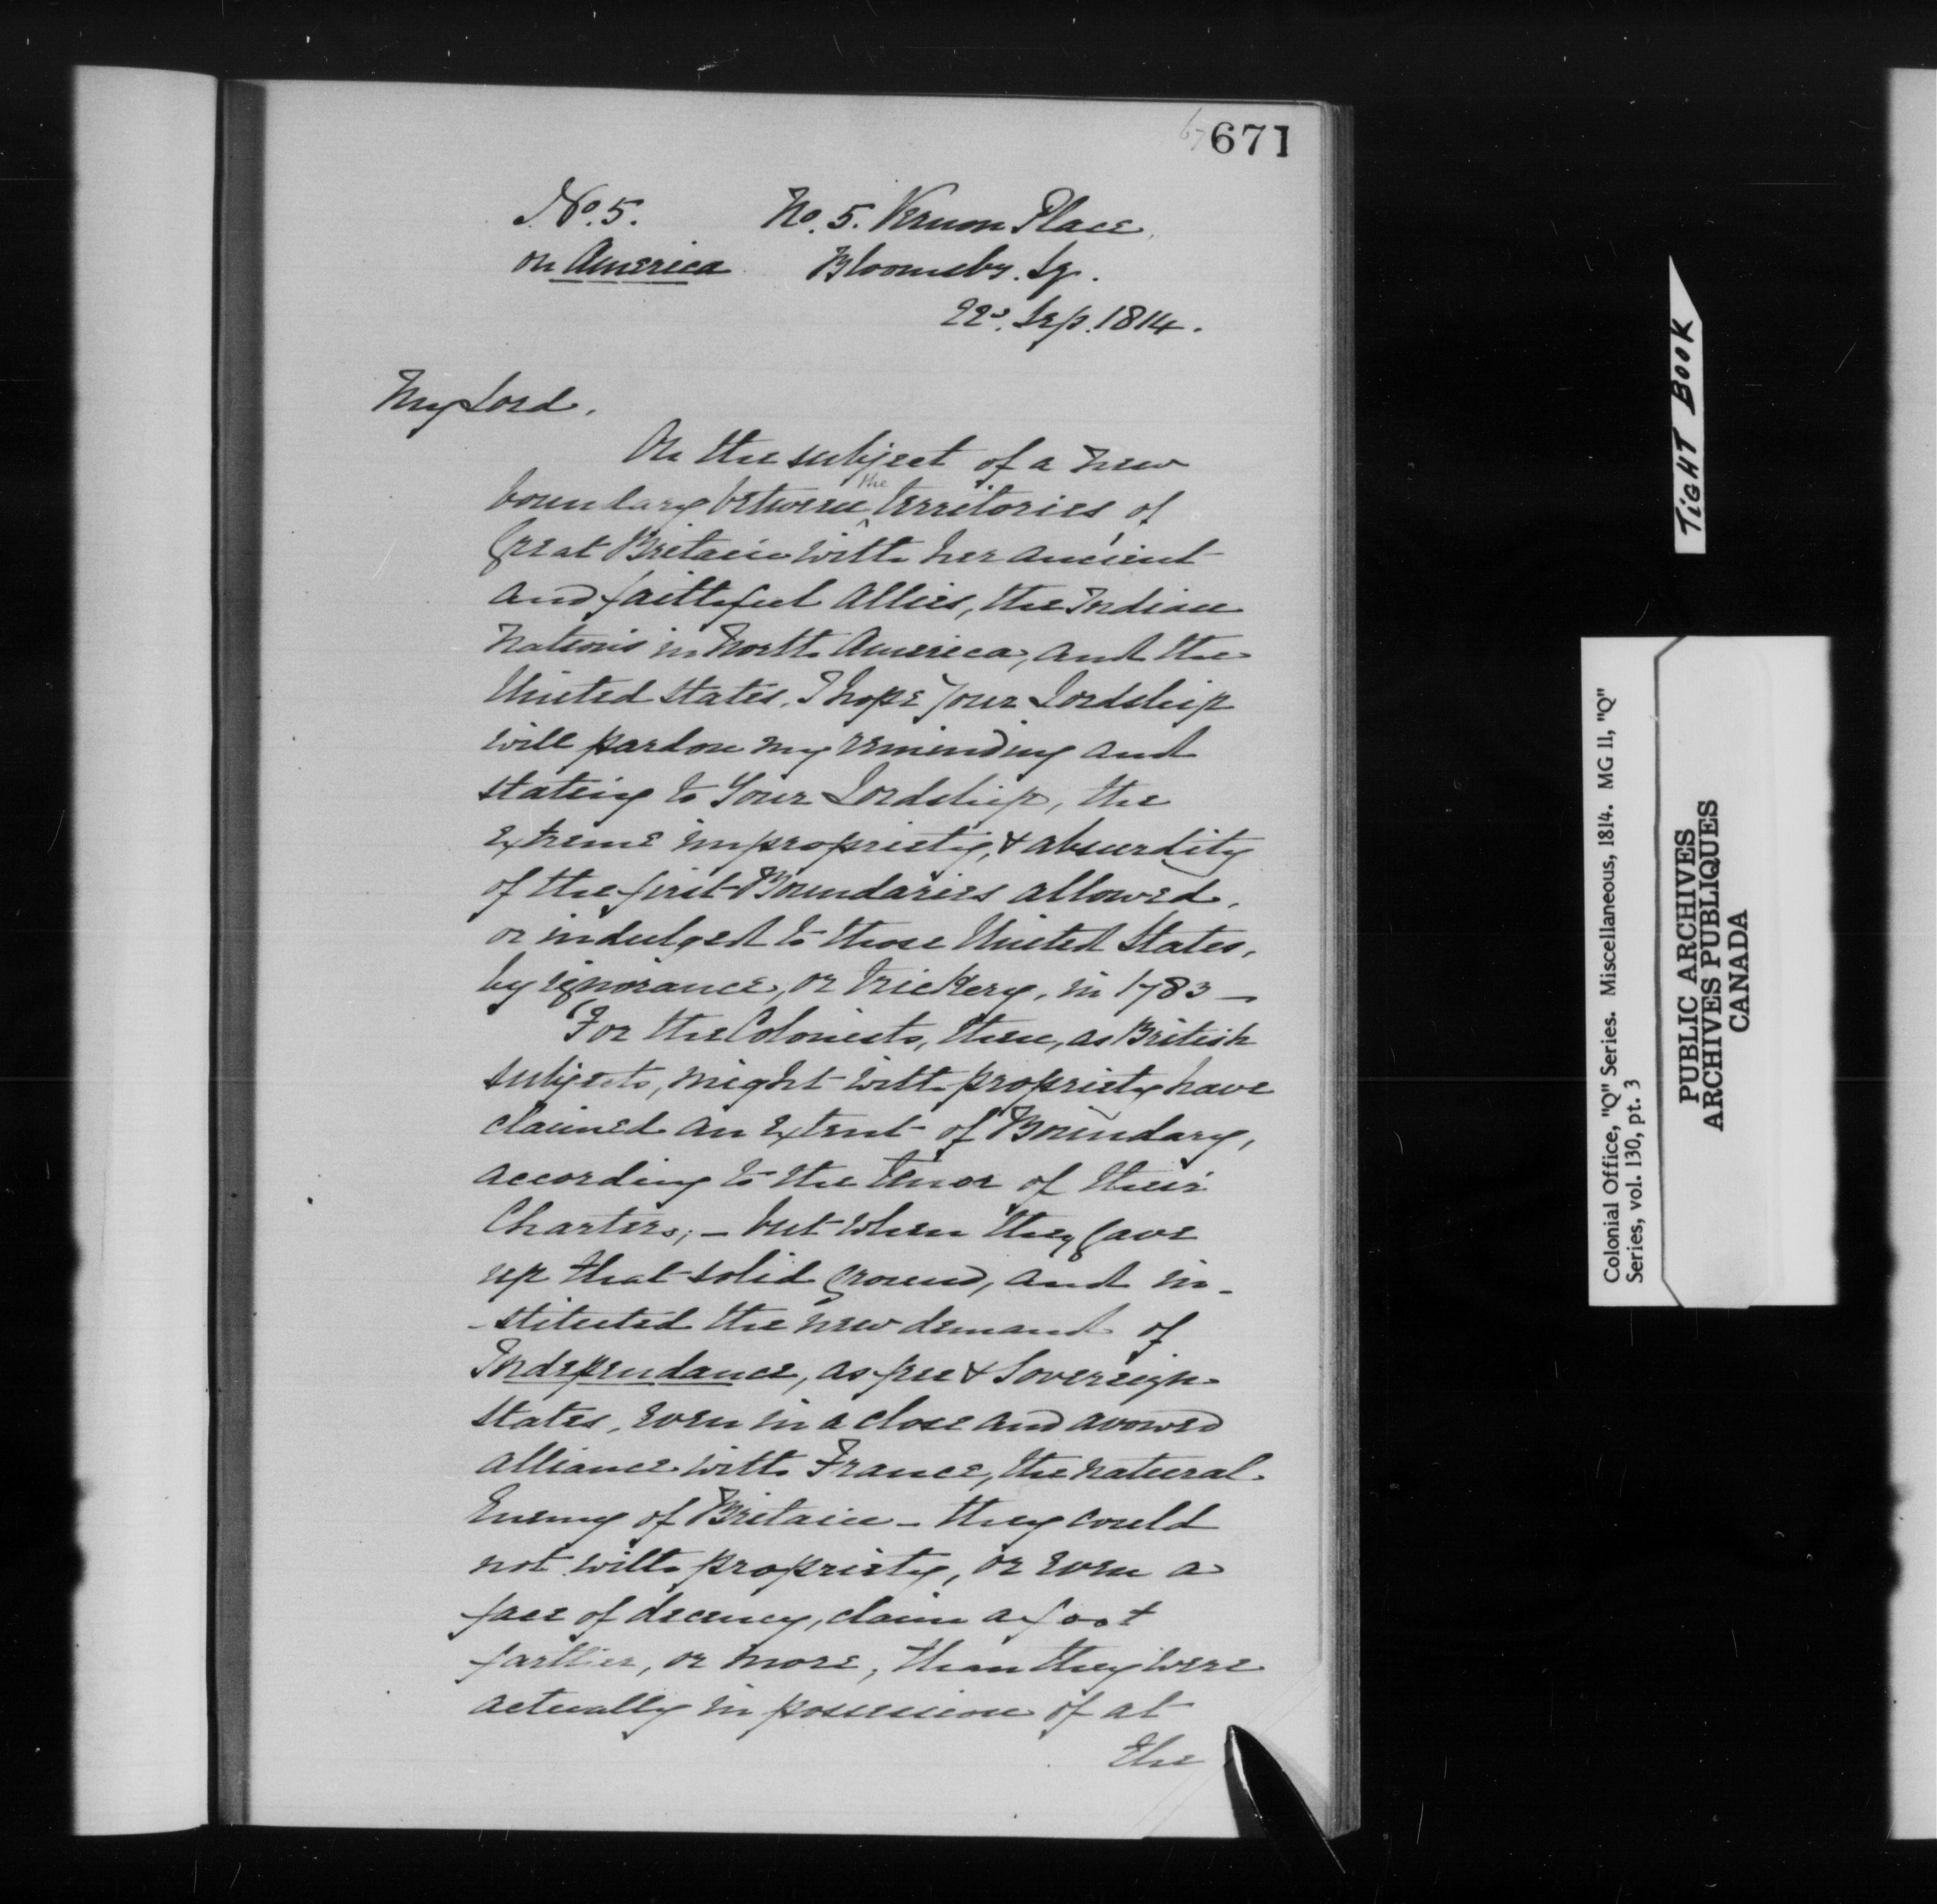 671
No. 5. No. 5. Vernon Place
on America Bloomsby. Sq.
22d. Sep. 1814.
My Lord,
On the subject of a new
boundary between the territories of
Great Britain with her ancient
and faithful allies, the Indian
Nations in North America, and the
United States, I hope Your Lordship
will pardon my reminding and
stating to Your Lordship, the
extreme impropriety, & absurdity
of the first Boundaries allowed,
or indulged to those United States,
by ignorance, or trickery, in 1783 —
For the Colonists, then, as British
subjects, might with propriety have
claimed an extent of Boundary,
according to the tenor of their
Charters; — but when they gave
up that solid ground, and in-
-stituted the new demand of
Independance, as free & Sovereign
States, even in a close and avowed
alliance with France, the natural
Enemy of Britain — they could
not with propriety, or even a
face of decency, claim a foot
farther, or more, than they were
actually in possession of at
the
TIGHT BOOK
Colonial Office, "Q" Series. Miscellaneous, 1814. MG 11, "Q"
Series, vol. 130, pt. 3
PUBLIC ARCHIVES
ARCHIVES PUBLIQUES
CANADA